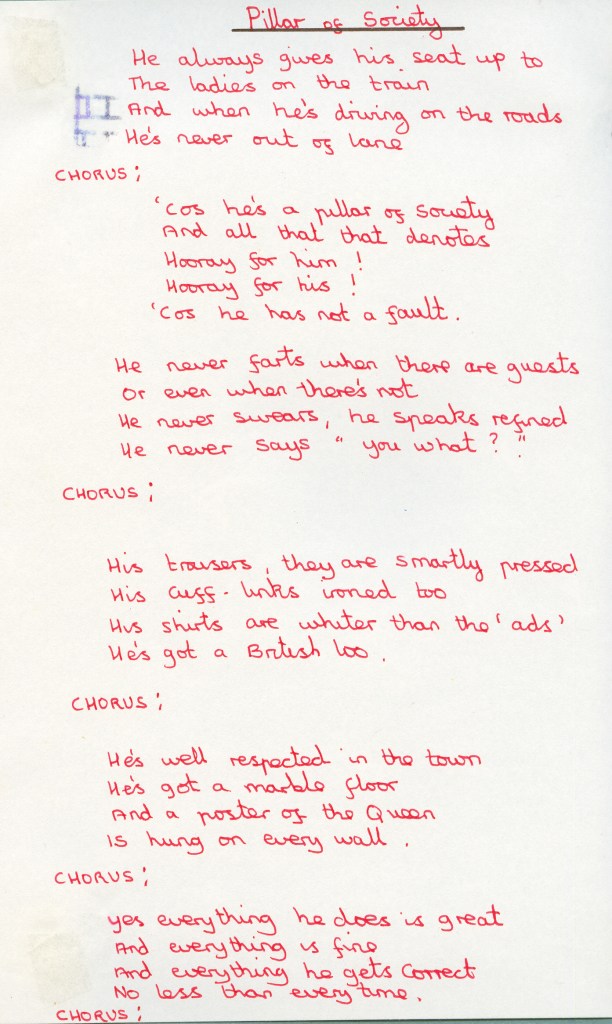 Pillar of Society
He always gives his seat up to
The ladies on the train
And when he's driving on the roads
He's never out of lane
CHORUS;
'Cos he's a pillar of society
And all that that denotes
Hooray for him!
Hooray for his!
'Cos he has not a fault.
He never farts when there are guests
Or even when there's not
He never swears, he speaks refined
He never says "you what?"
CHORUS;
His trousers, they are smartly pressed
His cuff-links ironed too
His shirts are whiter than the 'ads'
He's got a British loo.
CHORUS;
He's well respected in the town
He's got a marble floor
And a poster of the Queen
Is hung on every wall.
CHORUS;
yes everything he does is great
And everything is fine
And everything he gets correct
No less than everytime.
CHORUS;